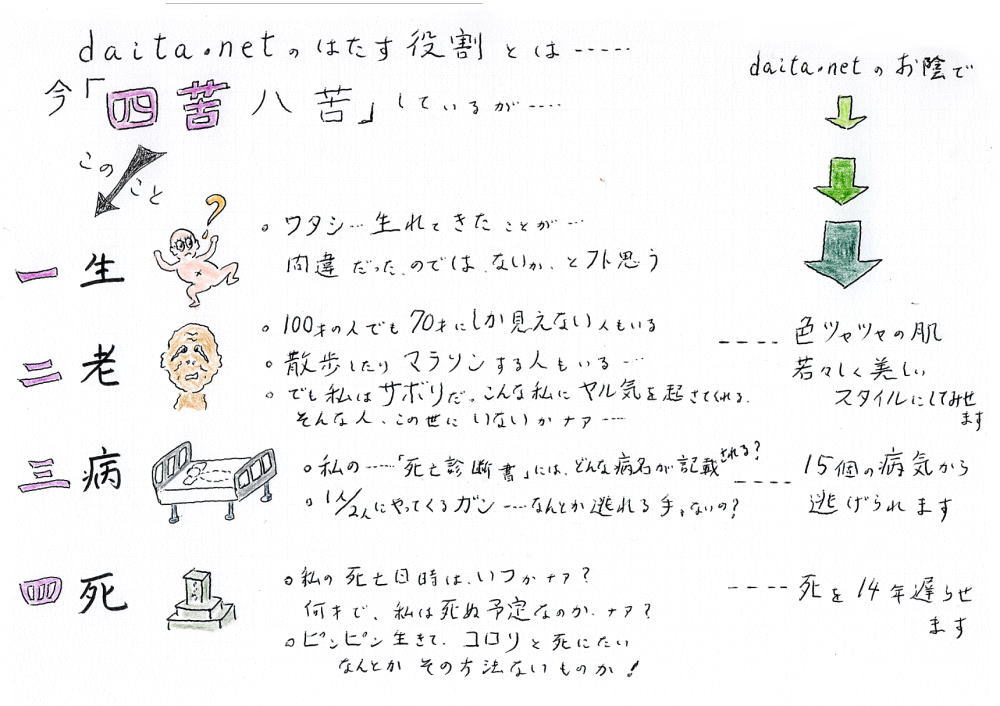 daita.netのはたす役割とは-----
今「四苦八苦」しているが----
このこと
daita.netのお陰で
一 生
?
。ワタシ…生れてきたことが…
間違だった、のでは、ないか、とフト思う
二 老
。100才の人でも70才にしか見えない人もいる
。散歩したりマラソンする人もいる----
。でも私はサボリだ。こんな私にヤル気を起させてくれる、
そんな人、この世にいないかナァ----
---- 色ツヤツヤの肌
若々しく美しい
スタイルにしてみせ
ます
三 病
。私の----「死亡診断書」には、どんな病名が記載される?
。1人/2人にやってくるガン----なんとか逃れる手、ないの?
---- 15個の病気から
逃げられます
四 死
。私の死亡日時は、いつかナァ?
何才で、私は死ぬ予定なのか、ナァ?
。ピンピン生きて、コロリと死にたい
なんとかその方法ないものか!
---- 死を14年遅らせ
ます